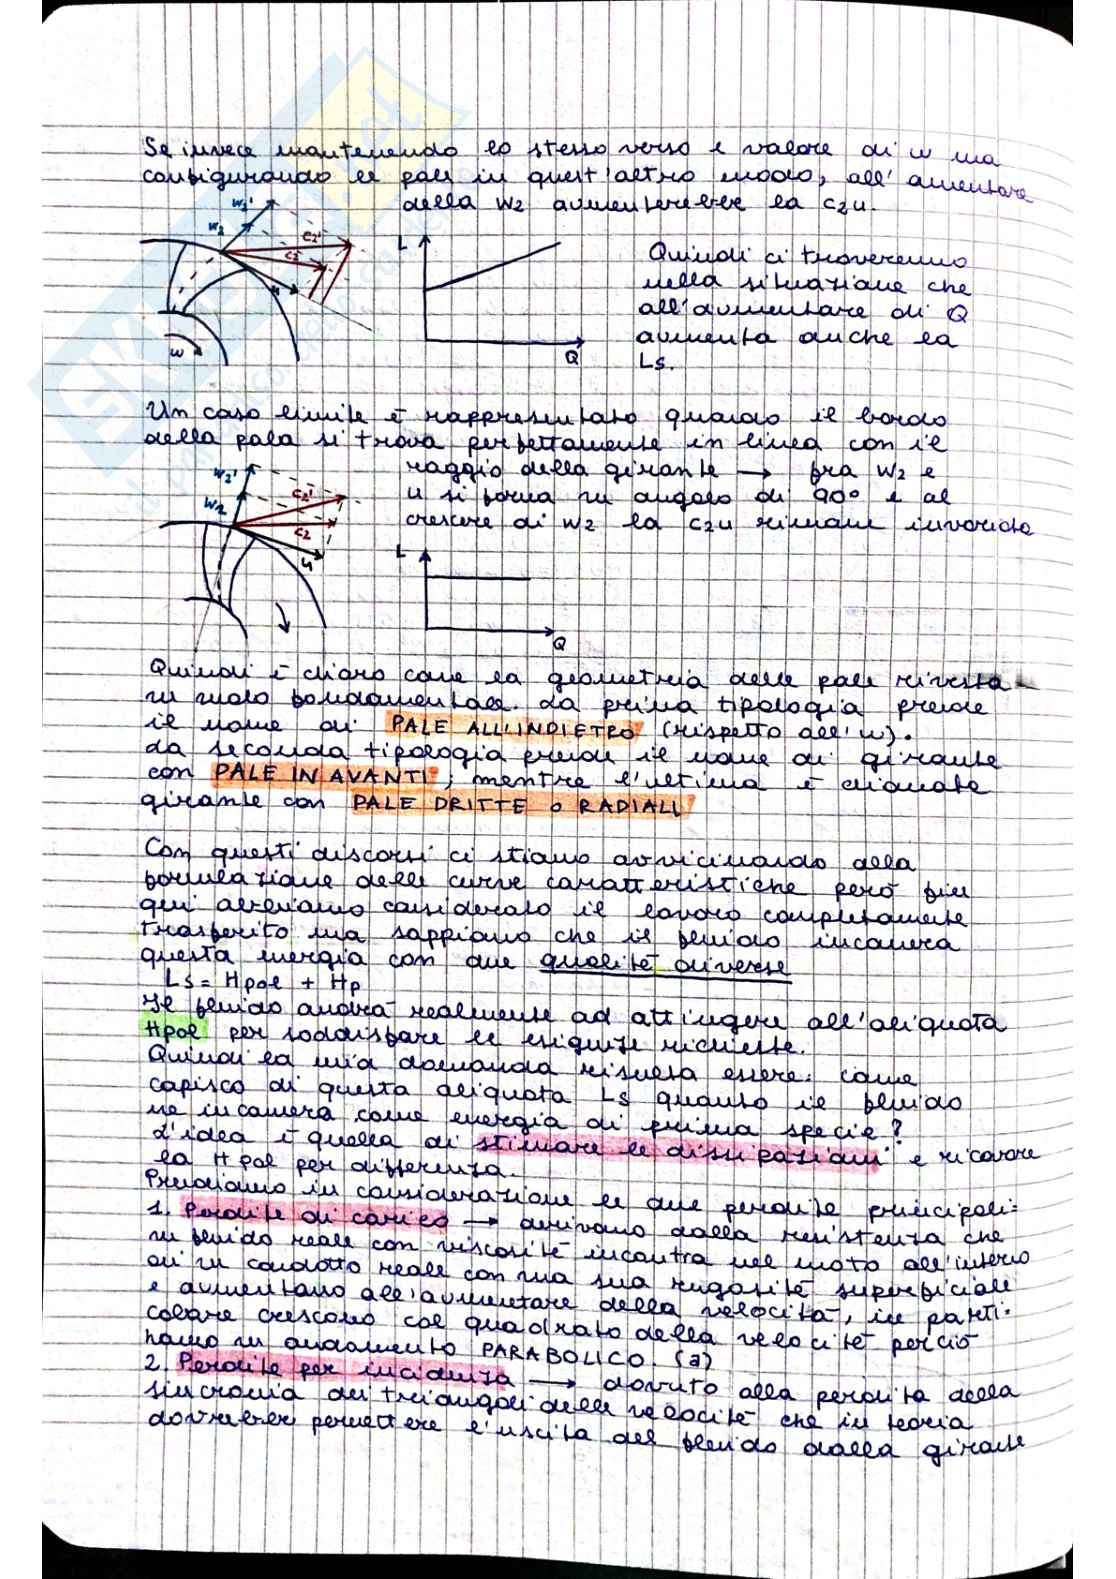 Se invece mantenendo lo stesso verso e valore di w ma
configurando le pale in quest'altro modo, all'aumentare
della w2 aumenterebbe la c2u.
w2'
w2
c2'
c2
u
w
L
Q
Quindi ci troveremo
nella situazione che
all'aumentare di Q
aumenta anche la
Ls.
Un caso limite è rappresentato quando il bordo
della pala si trova perfettamente in linea con il
raggio della girante → fra w2 e
u si forma un angolo di 90° e al
crescere di w2 la c2u rimane invariata
w2'
w2
c2'
c2
u
L
Q
Quindi è chiaro come la geometria delle pale rivesta
un ruolo fondamentale. La prima tipologia prende
il nome di PALE ALL'INDIETRO (rispetto all'u).
La seconda tipologia prende il nome di girante
con PALE IN AVANTI, mentre l'ultima è chiamata
girante con PALE DRITTE o RADIALI
Con questi discorsi ci stiamo avvicinando alla
formulazione delle curve caratteristiche però fin
qui abbiamo considerato il lavoro completamente
trasferito ma sappiamo che il fluido incamera
questa energia con due qualità diverse
Ls = Hpol + Hp
Il fluido andrà realmente ad attingere all'aliquota
Hpol per soddisfare le esigenze richieste.
Quindi la mia domanda risulta essere: come
capisco di questa aliquota Ls quanto il fluido
ne incamera come energia di prima specie?
L'idea è quella di stimare le dissipazioni e ricavare
la Hpol per differenza.
Prendiamo in considerazione le due perdite principali:
1. Perdite di carico → arrivano dalla resistenza che
un fluido reale con viscosità incontra nel moto all'interno
di un condotto reale con una sua rugosità superficiale
e aumentano all'aumentare della velocità, in parti-
colare crescono col quadrato della velocità perciò
hanno un andamento PARABOLICO. (a)
2. Perdite per incidenza → dovuto alla perdita della
sincronia dei triangoli delle velocità che in teoria
dovrebbe permettere l'uscita del fluido dalla girante